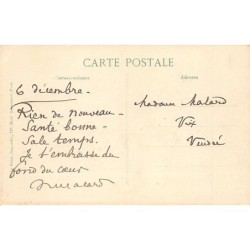 CARTE POSTALE
Correspondance
Adresse
6 décembre -
Rien de nouveau -
Santé bonne -
Sale temps.
Je t'embrasse du
fond du cœur
Madame Malard
Vix
Vendée